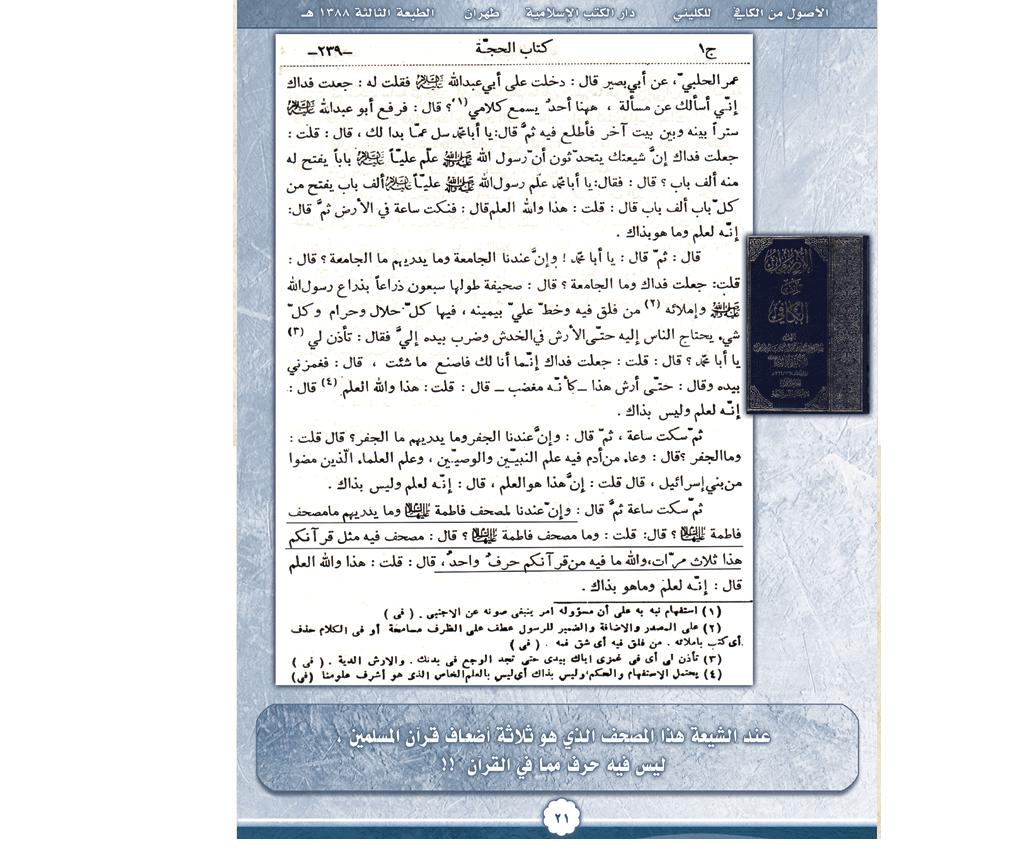 الأصول من الكافي للكليني دار الكتب الإسلامية طهران الطبعة الثالثة ١٣٨٨ هـ
ج١ كتاب الحجّة -٢٣٩-
عمر الحلبيّ، عن أبي بصير قال : دخلت على أبي عبدالله عليه السلام فقلت له : جعلت فداك
إنّي أسألك عن مسألة ، ههنا أحدٌ يسمع كلامي (١)؟ قال : فرفع أبو عبدالله عليه السلام
ستراً بينه وبين بيت آخر فأطلع فيه ثمَّ قال: يا أبا محمد سل عمّا بدا لك ، قال : قلت :
جعلت فداك إنَّ شيعتك يتحدّثون أنّ رسول الله صلى الله عليه وآله علّم عليّاً عليه السلام باباً يفتح له
منه ألف باب ؟ قال : فقال: يا أبا محمد علّم رسول الله صلى الله عليه وآله عليّاً عليه السلام ألف باب يفتح من
كلّ باب ألف باب قال : قلت : هذا والله العلم قال : فنكت ساعة في الأرض ثمَّ قال:
إنّه لعلم وما هو بذاك .
قال : ثمّ قال : يا أبا محمد ! وإنَّ عندنا الجامعة وما يدريهم ما الجامعة ؟ قال :
قلت: جعلت فداك وما الجامعة ؟ قال : صحيفة طولها سبعون ذراعاً بذراع رسول الله
صلى الله عليه وآله وإملائه (٢) من فلق فيه وخطّ عليّ بيمينه ، فيها كلّ حلال وحرام وكلّ
شيء يحتاج الناس إليه حتّى الأرش في الخدش وضرب بيده إليَّ فقال : تأذن لي (٣)
يا أبا محمد ؟ قال : قلت : جعلت فداك إنّما أنا لك فاصنع ما شئت ، قال : فغمزني
بيده وقال : حتّى أرش هذا ـ كأنّه مغضب ـ قال : قلت : هذا والله العلم (٤) قال :
إنّه لعلم وليس بذاك .
ثمّ سكت ساعة ، ثمّ قال : وإنَّ عندنا الجفر وما يدريهم ما الجفر ؟ قال قلت :
وما الجفر ؟ قال : وعاء من أدم فيه علم النبيّين والوصيّين ، وعلم العلماء الّذين مضوا
من بني إسرائيل ، قال قلت : إنَّ هذا هو العلم ، قال : إنّه لعلم وليس بذاك .
ثمّ سكت ساعة ثمَّ قال : وإنّ عندنا لمصحف فاطمة عليها السلام وما يدريهم ما مصحف
فاطمة عليها السلام ؟ قال: قلت : وما مصحف فاطمة عليها السلام ؟ قال : مصحف فيه مثل قرآنكم
هذا ثلاث مرّات، والله ما فيه من قرآنكم حرفٌ واحدٌ ، قال : قلت : هذا والله العلم
قال : إنّه لعلم وما هو بذاك .
(١) استفهام نبه به على أن مسؤوله امر ينبغى صونه عن الاجنبى . ( فى )
(٢) على المصدر والاضافة والضمير للرسول عطف على الظرف مسامحة أو فى الكلام حذف
أى كتب باملائه . من فلق فيه أى شق فمه . ( فى )
(٣) تأذن لى أى فى غمزى اياك بيدى حتى تجد الوجع فى بدنك . والارش الدية . ( فى )
(٤) يحتمل الاستفهام والحكم وليس بذاك أى ليس بالعلم الخاص الذى هو أشرف علومنا (فى)
الأصول
من
الكافي
عند الشيعة هذا المصحف الذي هو ثلاثة أضعاف قرآن المسلمين ،
ليس فيه حرف مما في القرآن !!
٢١